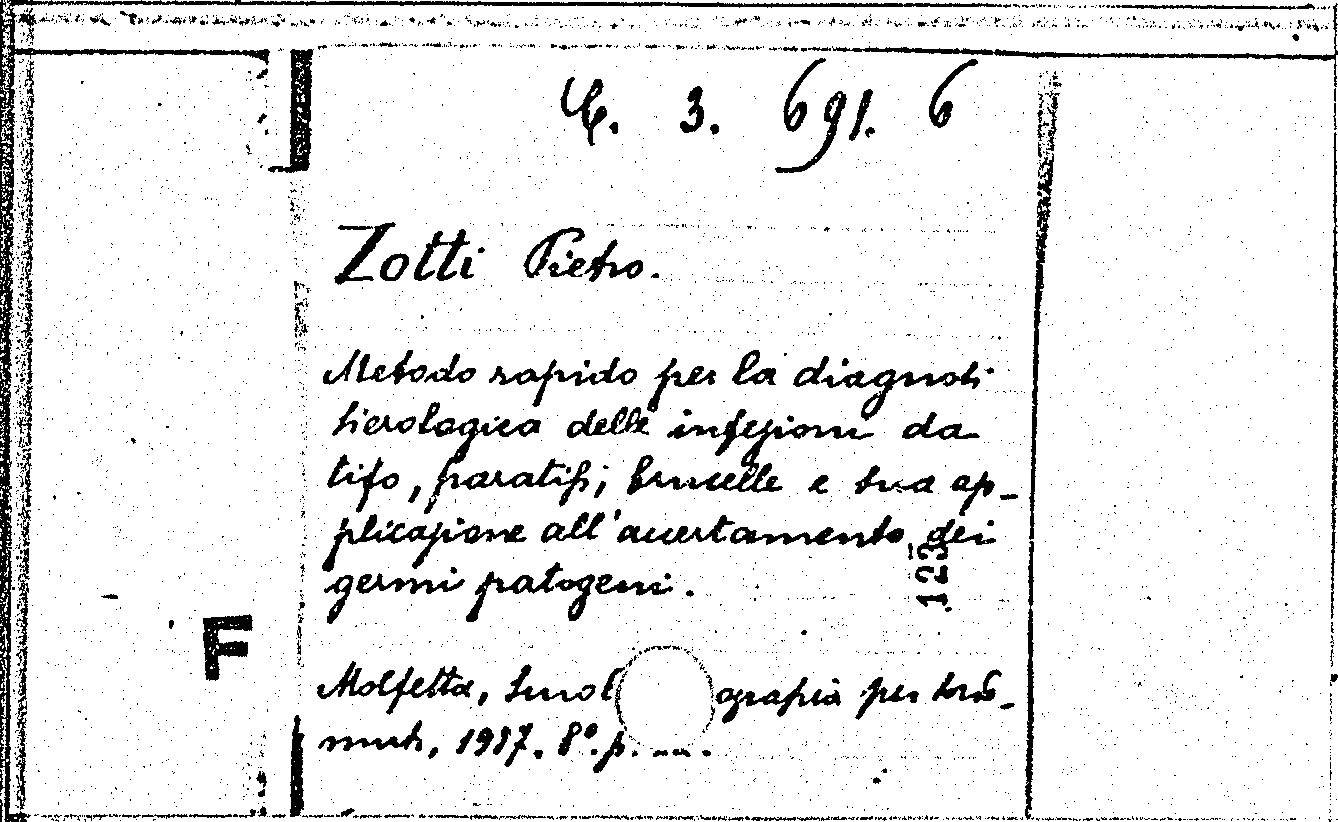 C. 3. 691. 6
Zotti Pietro.
Metodo rapido per la diagnosi
sierologica delle infezioni da
tifo, paratifi, brucelle e sua ap-
plicazione all'accertamento dei
germi patogeni.
123
F
Molfetta, grafia per
1937. 8°. p.